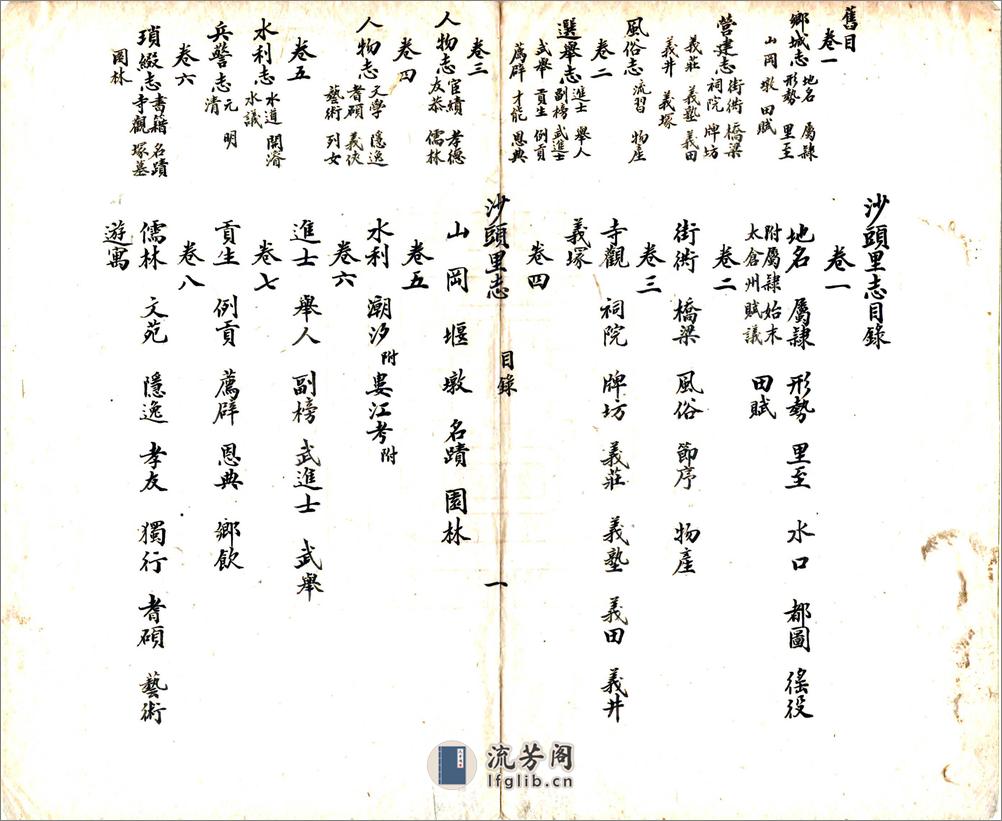 舊目
卷一
鄉城志 地名 屬隸
形勢 里至
山岡墩 田賦
營建志 街衖 橋梁
祠院 牌坊
義莊 義塾 義田
義井 義塚
風俗志 流習 物產
卷二
選舉志 進士 舉人
副榜 武進士
武舉 貢生 例貢
薦辟 才能 恩典
卷三
人物志 宦績 孝德
友恭 儒林
卷四
人物志 文學 隱逸
耆碩 義俠
藝術 列女
卷五
水利志 水道 開濬
水議
兵警志 元 明
清
卷六
瑣綴志 書籍 名蹟
寺觀 塚墓
園林
沙頭里志目錄
卷一
地名 屬隸 形勢 里至 水口 都圖 徭役
附屬隸始末
太倉州賦議 田賦
卷二
街衖 橋梁 風俗 節序 物產
卷三
寺觀 祠院 牌坊 義莊 義塾 義田 義井
義塚
卷四
沙頭里志 目錄 一
山 岡 堰 墩 名蹟 園林
卷五
水利 潮汐附 婁江考附
卷六
進士 舉人 副榜 武進士 武舉
卷七
貢生 例貢 薦辟 恩典 鄉飲
卷八
儒林 文苑 隱逸 孝友 獨行 耆碩 藝術
遊寓
流芳阁
lfglib.cn